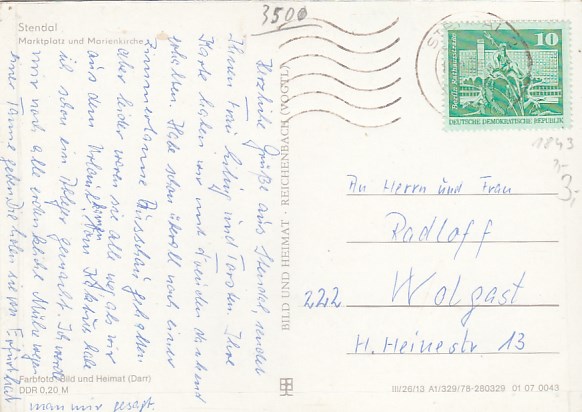 3500
Stendal
Marktplatz und Marienkirche
Herzliche Grüße aus Stendal, senden
Ihnen Frau und Torsten. Ihre
Karte haben wir mit Freuden
erhalten. Habe schon überall nach einer
Zimmertanne Ausschau gehalten
aber leider waren sie alle weg als wir
aus dem Urlaub kamen. Am habe
ich schon ein gemacht. Ich werde
mir noch alle erdenkliche Mühe wegen
einer Tanne geben. Die holen sie von Erfurt hat
man mir gesagt.
Farbfoto: Bild und Heimat (Darr)
DDR 0,20 M
BILD UND HEIMAT · REICHENBACH (VOGTL)
Berlin, Rathausstraße
10
DEUTSCHE DEMOKRATISCHE REPUBLIK
1843
3,-
An Herrn und Frau
Radloff
222 Wolgast
H. Heinestr 13
III/26/13 A1/329/78-280329 01 07 0043